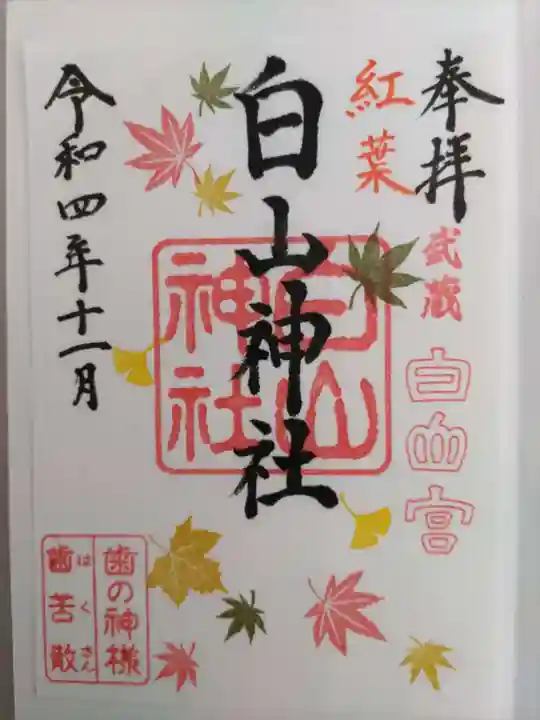 奉拝
紅葉
武蔵
白山宮
白山神社
白山
神社
令和四年十一月
歯の神様
歯苦散
はくさん